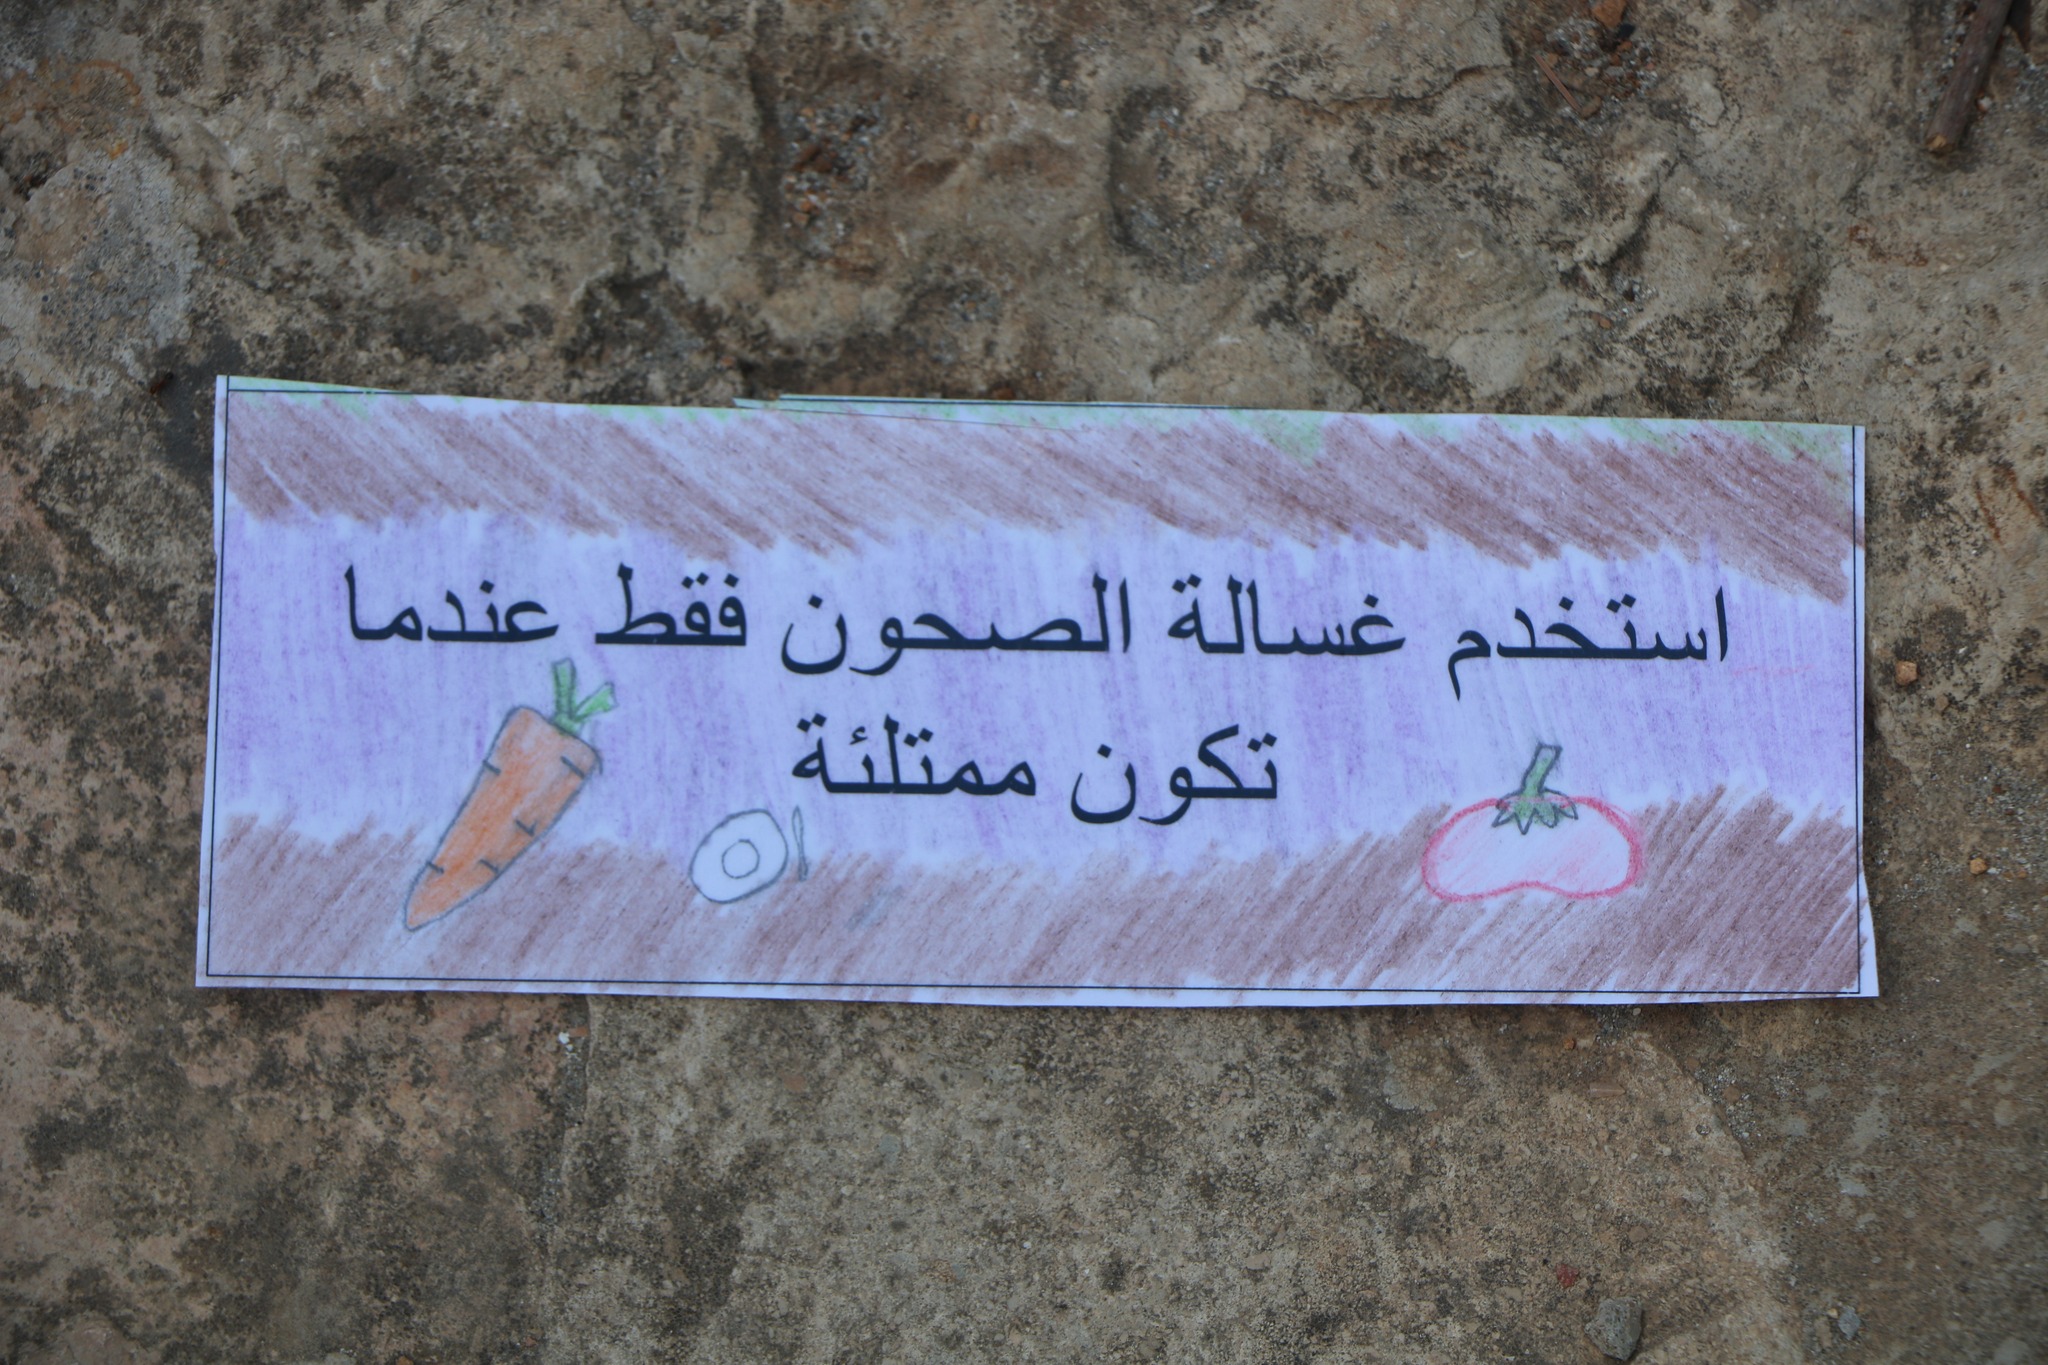 استخدم غسالة الصحون فقط عندما
تكون ممتلئة